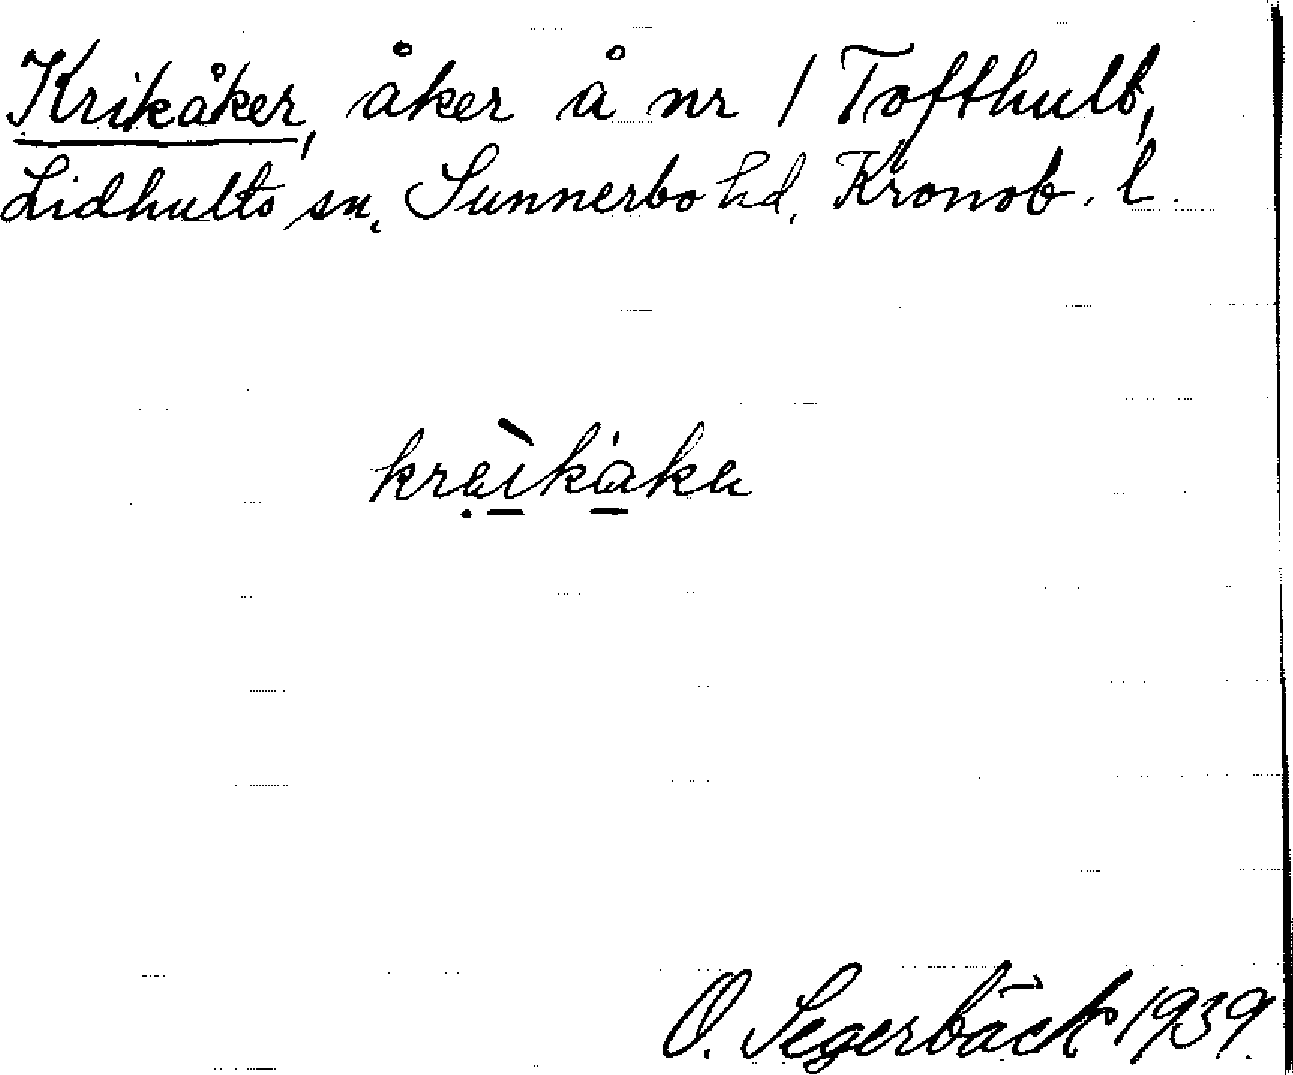 Krikåker, åker å nr 1 Tofthult,
Lidhults sn, Sunnerbo hd, Kronob. l.
O. Segerbäck 1939.